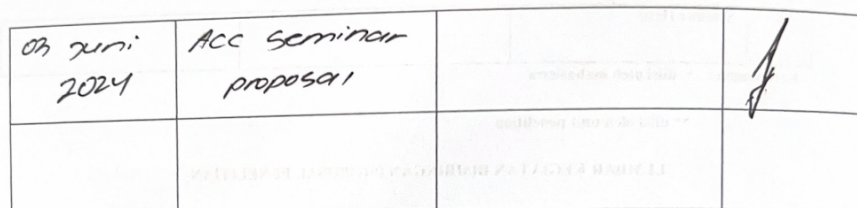 03 Juni
2024
Acc seminar
proposal